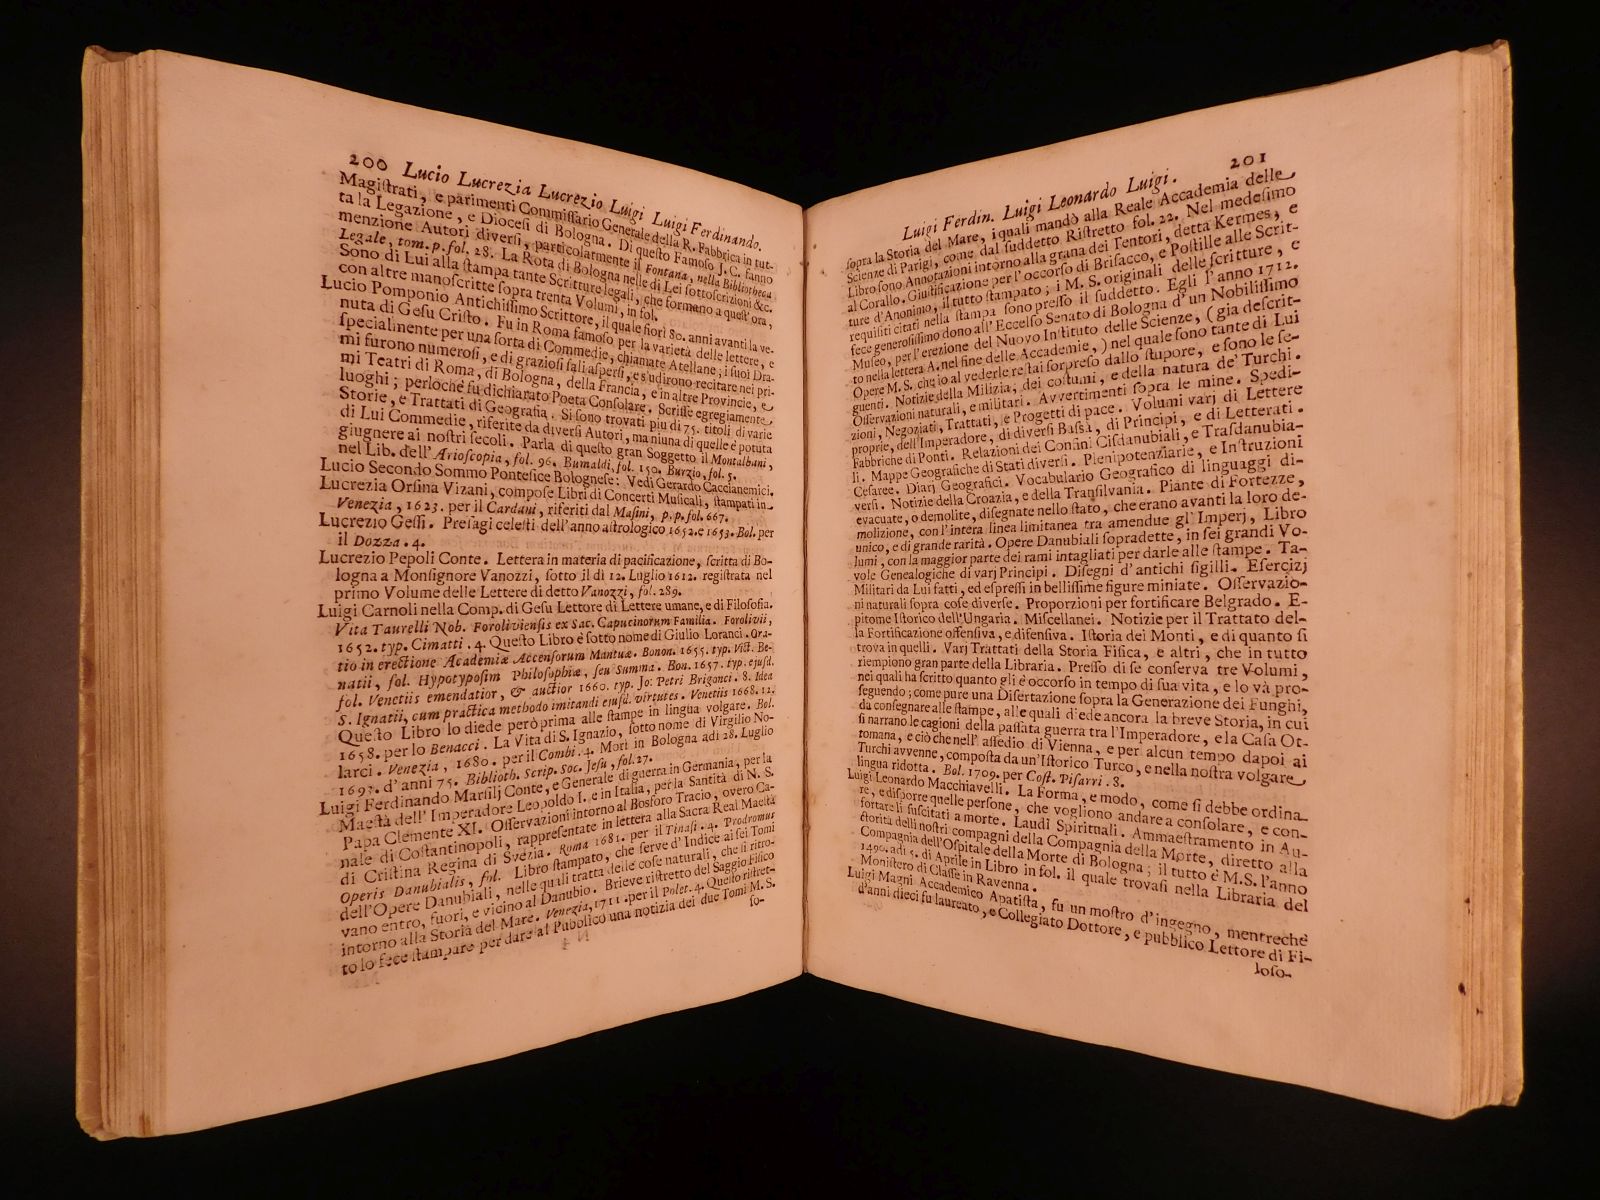 200 Lucio Lucrezia Lucrezio Luigi Luigi Ferdinando.
Magiſtrati, e parimenti Commiſſario Generale della R. Fabbrica in tut-
ta la Legazione, e Dioceſi di Bologna. Di queſto Famoſo J. C. fanno
menzione Autori diverſi, particolarmente il Fontana, nella Bibliotheca
Legale, tom. p. fol. 28. La Rota di Bologna nelle di Lei ſottoſcrizioni &c.
Sono di Lui alla ſtampa tante Scritture legali, che formano a queſt' ora,
con altre manoſcritte ſopra trenta Volumi, in fol.
Lucio Pomponio Antichiſſimo Scrittore, il quale fiorì 80. anni avanti la ve-
nuta di Gesu Criſto. Fu in Roma famoſo per la varietà delle lettere, e
ſpecialmente per una ſorta di Commedie, chiamate Atellane; i ſuoi Dra-
mi furono numeroſi, e di grazioſi ſali aſperſi, e s'udirono recitare nei pri-
mi Teatri di Roma, di Bologna, della Francia, e in altre Provincie, e
luoghi; perlochè fu dichiarato Poeta Conſolare. Scriſſe egregiamente
Storie, e Trattati di Geografia. Si ſono trovati piu di 75. titoli di varie
di Lui Commedie, riferite da diverſi Autori, ma niuna di quelle è potuta
giugnere ai noſtri ſecoli. Parla di queſto gran Soggetto il Montalbani,
nel Lib. dell' Arioſcopia, fol. 96. Bumaldi, fol. 150. Burzio, fol. 5.
Lucio Secondo Sommo Pontefice Bologneſe: Vedi Gerardo Caccianemici.
Lucrezia Orſina Vizani, compoſe Libri di Concerti Muſicali, ſtampati in
Venezia, 1623. per il Cardani, riferiti dal Maſini, p. p. fol. 667.
Lucrezio Geſſi. Preſagi celeſti dell'anno aſtrologico 1652. e 1653. Bol. per
il Dozza. 4.
Lucrezio Pepoli Conte. Lettera in materia di pacificazione, ſcritta di Bo-
logna a Monſignore Vanozzi, ſotto il dì 12. Luglio 1612. regiſtrata nel
primo Volume delle Lettere di detto Vanozzi, fol. 289.
Luigi Carnoli nella Comp. di Gesu Lettore di Lettere umane, e di Filoſofia.
Vita Taurelli Nob. Forolivienſis ex Sac. Capucinorum Familia. Forolivii,
1652. typ. Cimatti. 4. Queſto Libro è ſotto nome di Giulio Loranci. Ora-
tio in erectione Academiæ Accenſorum Mantuæ. Bonon. 1655. typ. Vict. Be-
natii, fol. Hypotypoſim Philoſophiæ, ſeu Summa. Bon. 1657. typ. ejuſd.
fol. Venetiis emendatior, & auctior 1660. typ. Jo: Petri Brigonci. 8. Idea
S. Ignatii, cum practica methodo imitandi ejuſd. virtutes. Venetiis 1668. 12.
Queſto Libro lo diede però prima alle ſtampe in lingua volgare. Bol.
1658. per lo Benacci. La Vita di S. Ignazio, ſotto nome di Virgilio No-
larci. Venezia, 1680. per il Combi. 4. Morì in Bologna adì 28. Luglio
1693. d'anni 75. Biblioth. Scrip. Soc. Jeſu, fol. 27.
Luigi Ferdinando Marſilj Conte, e Generale di guerra in Germania, per la
Maeſtà dell' Imperadore Leopoldo I. e in Italia, per la Santità di N. S.
Papa Clemente XI. Oſſervazioni intorno al Bosforo Tracio, overo Ca-
nale di Coſtantinopoli, rappreſentate in lettera alla Sacra Real Maeſtà
di Criſtina Regina di Svezia. Roma 1681. per il Tinaſi. 4. Prodromus
Operis Danubialis, fol. Libro ſtampato, che ſerve d'Indice ai ſei Tomi
dell'Opere Danubiali, nelle quali tratta delle coſe naturali, che ſi ritro-
vano entro, fuori, e vicino al Danubio. Brieve riſtretto del Saggio Fiſico
intorno alla Storia del Mare. Venezia, 1711. per il Polet. 4. Queſto riſtret-
to lo fece ſtampare per dare al Pubblico una notizia dei due Tomi M. S.
N 4
ſo-
201
Luigi Ferdin. Luigi Leonardo Luigi.
ſopra la Storia del Mare, i quali mandò alla Reale Accademia delle
Scienze di Parigi, come dal ſuddetto Riſtretto fol. 22. Nel medeſimo
Libro ſono Annotazioni intorno alla grana dei Tentori, detta Kermes, e
al Corallo. Giuſtificazione per l'occorſo di Briſacco, e Poſtille alle Scrit-
ture d'Anonimo, il tutto ſtampato; i M. S. originali delle ſcritture, e
requiſiti citati nella ſtampa ſono preſſo il ſuddetto. Egli l'anno 1712.
fece generoſiſſimo dono all' Eccelſo Senato di Bologna d'un Nobiliſſimo
Muſeo, per l'erezione del Nuovo Inſtituto delle Scienze, (gia deſcrit-
to nella lettera A. nel fine delle Accademie,) nel quale ſono tante di Lui
Opere M. S. che io al vederle reſtai ſorpreſo dallo ſtupore, e ſono le ſe-
guenti. Notizie della Milizia, dei coſtumi, e della natura de' Turchi.
Oſſervazioni naturali, e militari. Avvertimenti ſopra le mine. Spedi-
zioni, Negoziati, Trattati, e Progetti di pace. Volumi varj di Lettere
proprie, dell'Imperadore, di diverſi Baſsà, di Principi, e di Letterati.
Fabbriche di Ponti. Relazioni dei Confini Ciſdanubiali, e Traſdanubia-
li. Mappe Geografiche di Stati diverſi. Plenipotenziarie, e Inſtruzioni
Ceſaree. Diarj Geografici. Vocabulario Geografico di linguaggi di-
verſi. Notizie della Croazia, e della Tranſilvania. Piante di Fortezze,
evacuate, o demolite, diſegnate nello ſtato, che erano avanti la loro de-
molizione, con l'intera linea limitanea tra amendue gl' Imperj, Libro
unico, e di grande rarità. Opere Danubiali ſopradette, in ſei grandi Vo-
lumi, con la maggior parte dei rami intagliati per darle alle ſtampe. Ta-
vole Genealogiche di varj Principi. Diſegni d'antichi ſigilli. Eſercizj
Militari da Lui fatti, ed eſpreſſi in belliſſime figure miniate. Oſſervazio-
ni naturali ſopra coſe diverſe. Proporzioni per fortificare Belgrado. E-
pitome Iſtorico dell'Ungaria. Miſcellanei. Notizie per il Trattato del-
la Fortificazione offenſiva, e difenſiva. Iſtoria dei Monti, e di quanto ſi
trova in quelli. Varj Trattati della Storia Fiſica, e altri, che in tutto
riempiono gran parte della Libraria. Preſſo di ſe conſerva tre Volumi,
nei quali ha ſcritto quanto gli è occorſo in tempo di ſua vita, e lo và pro-
ſeguendo; come pure una Diſertazione ſopra la Generazione dei Funghi,
da conſegnare alle ſtampe, alle quali diede ancora la breve Storia, in cui
ſi narrano le cagioni della paſſata guerra tra l'Imperadore, e la Caſa Ot-
tomana, e ciò che nell' aſſedio di Vienna, e per alcun tempo dapoi ai
Turchi avvenne, compoſta da un'Iſtorico Turco, e nella noſtra volgare
lingua ridotta. Bol. 1709. per Coſt. Piſarri. 8.
Luigi Leonardo Macchiavelli. La Forma, e modo, come ſi debbe ordina
re, e diſporre quelle perſone, che vogliono andare a conſolare, e con-
fortare li ſuſcitati a morte. Laudi Spirituali. Ammaeſtramento in Au-
ſtorità delli noſtri compagni della Compagnia della Morte, diretto alla
Compagnia dell'Oſpitale della Morte di Bologna; il tutto è M.S. l'anno
1490. adì 5. di Aprile in Libro in fol. il quale trovaſi nella Libraria del
Moniſtero di Claſſe in Ravenna.
Luigi Magni Accademico Apatiſta, fu un moſtro d'ingegno, mentrechè
d'anni dieci fu laureato, e Collegiato Dottore, e pubblico Lettore di Fi-
loſo-